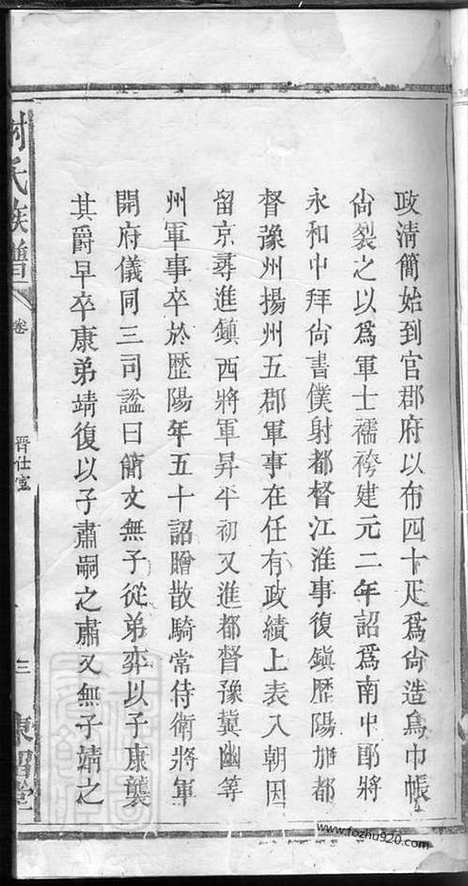 政清簡始到官郡府以布四十疋爲尙造烏巾帳
尙裂之以爲軍士襦袴建元二年詔爲南中郎將
永和中拜尙書僕射都督江淮事復鎭歷陽加都
督豫州揚州五郡軍事在任有政績上表入朝因
留京尋進鎭西將軍昇平初又進都督豫冀幽等
州軍事卒於歷陽年五十詔贈散騎常侍衛將軍
開府儀同三司謚曰簡文無子從弟弈以子康襲
其爵早卒康弟靖復以子肅嗣之肅又無子靖之
氏族譜
卷
晋仕宦
三
東習堂
www.fozhu920.com